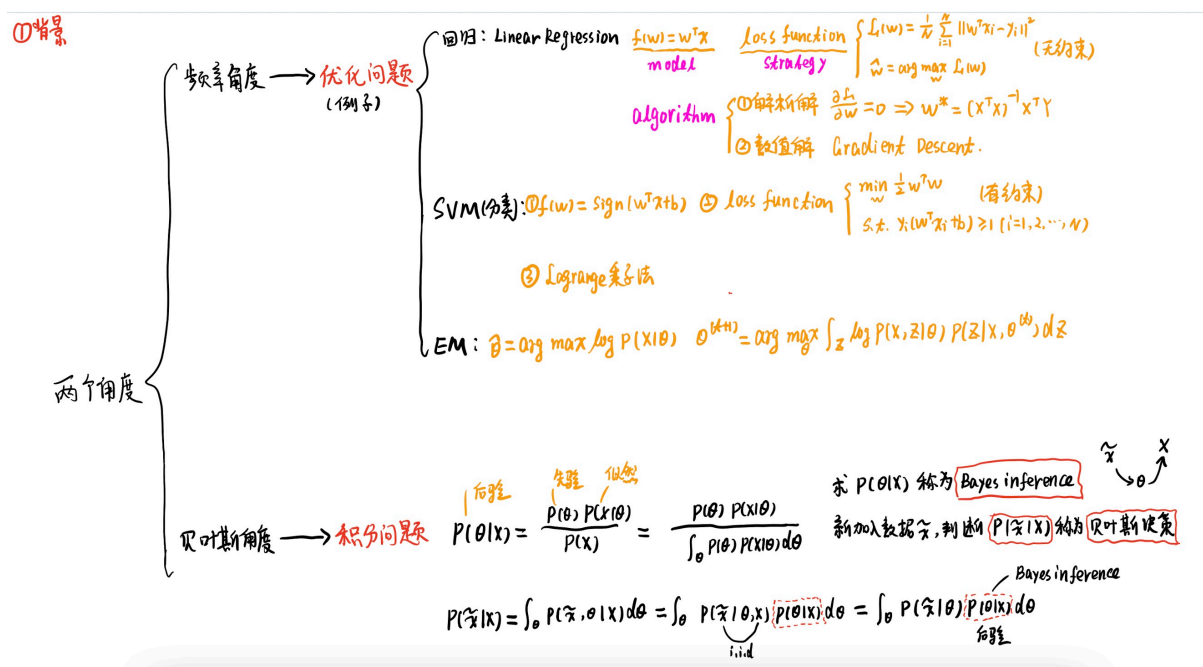 ①背景
两个角度
频率角度 → 优化问题
(例子)
回归: Linear Regression f(w)=wᵀx loss function
model strategy
L(w)=1/N ∑ᵢ₌₁ᴺ ||wᵀxi-yi||²
ŵ=arg max_w L(w)
(无约束)
algorithm ①解析解 ∂L/∂w=0 ⇒ w*=(XᵀX)⁻¹XᵀY
②数值解 Gradient Descent.
SVM(分类): ①f(w)=sign(wᵀx+b) ② loss function
min_w 1/2 wᵀw (有约束)
s.t. yi(wᵀxi+b)≥1 (i=1,2,…,N)
③ Lagrange乘子法
EM: θ̂=arg max log P(X|θ) θ^(t+1)=arg max_θ ∫_Z log P(X,Z|θ) P(Z|X,θ^(t)) dZ
贝叶斯角度 → 积分问题
后验 先验 似然
P(θ|X)= P(θ) P(X|θ) / P(X) = P(θ) P(X|θ) / ∫_θ P(θ) P(X|θ)dθ
求 P(θ|X) 称为 Bayes inference
x̃ θ X
新加入数据x̃,判断 P(x̃|X) 称为 贝叶斯决策
Bayes inference
P(x̃|X)=∫_θ P(x̃,θ|X)dθ=∫_θ P(x̃|θ,X) P(θ|X)dθ=∫_θ P(x̃|θ) P(θ|X)dθ
i.i.d
后验